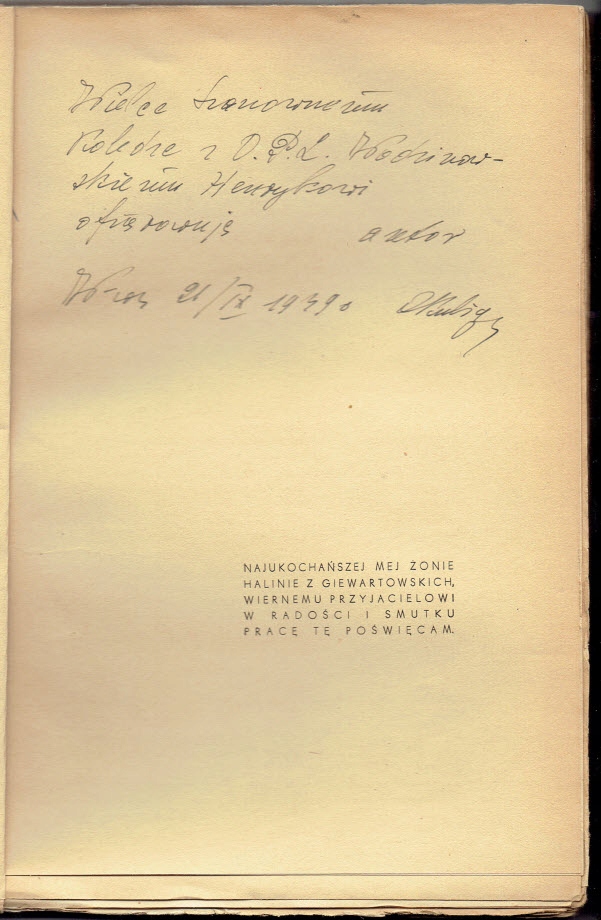 Wielce Szanownemu
Koledze z O.P.L. Wodzinow-
skiemu Henrykowi
ofiarowuję autor
W-wa 21/IX 1939
NAJUKOCHAŃSZEJ MEJ ŻONIE
HALINIE Z GIEWARTOWSKICH,
WIERNEMU PRZYJACIELOWI
W RADOŚCI I SMUTKU
PRACĘ TĘ POŚWIĘCAM.